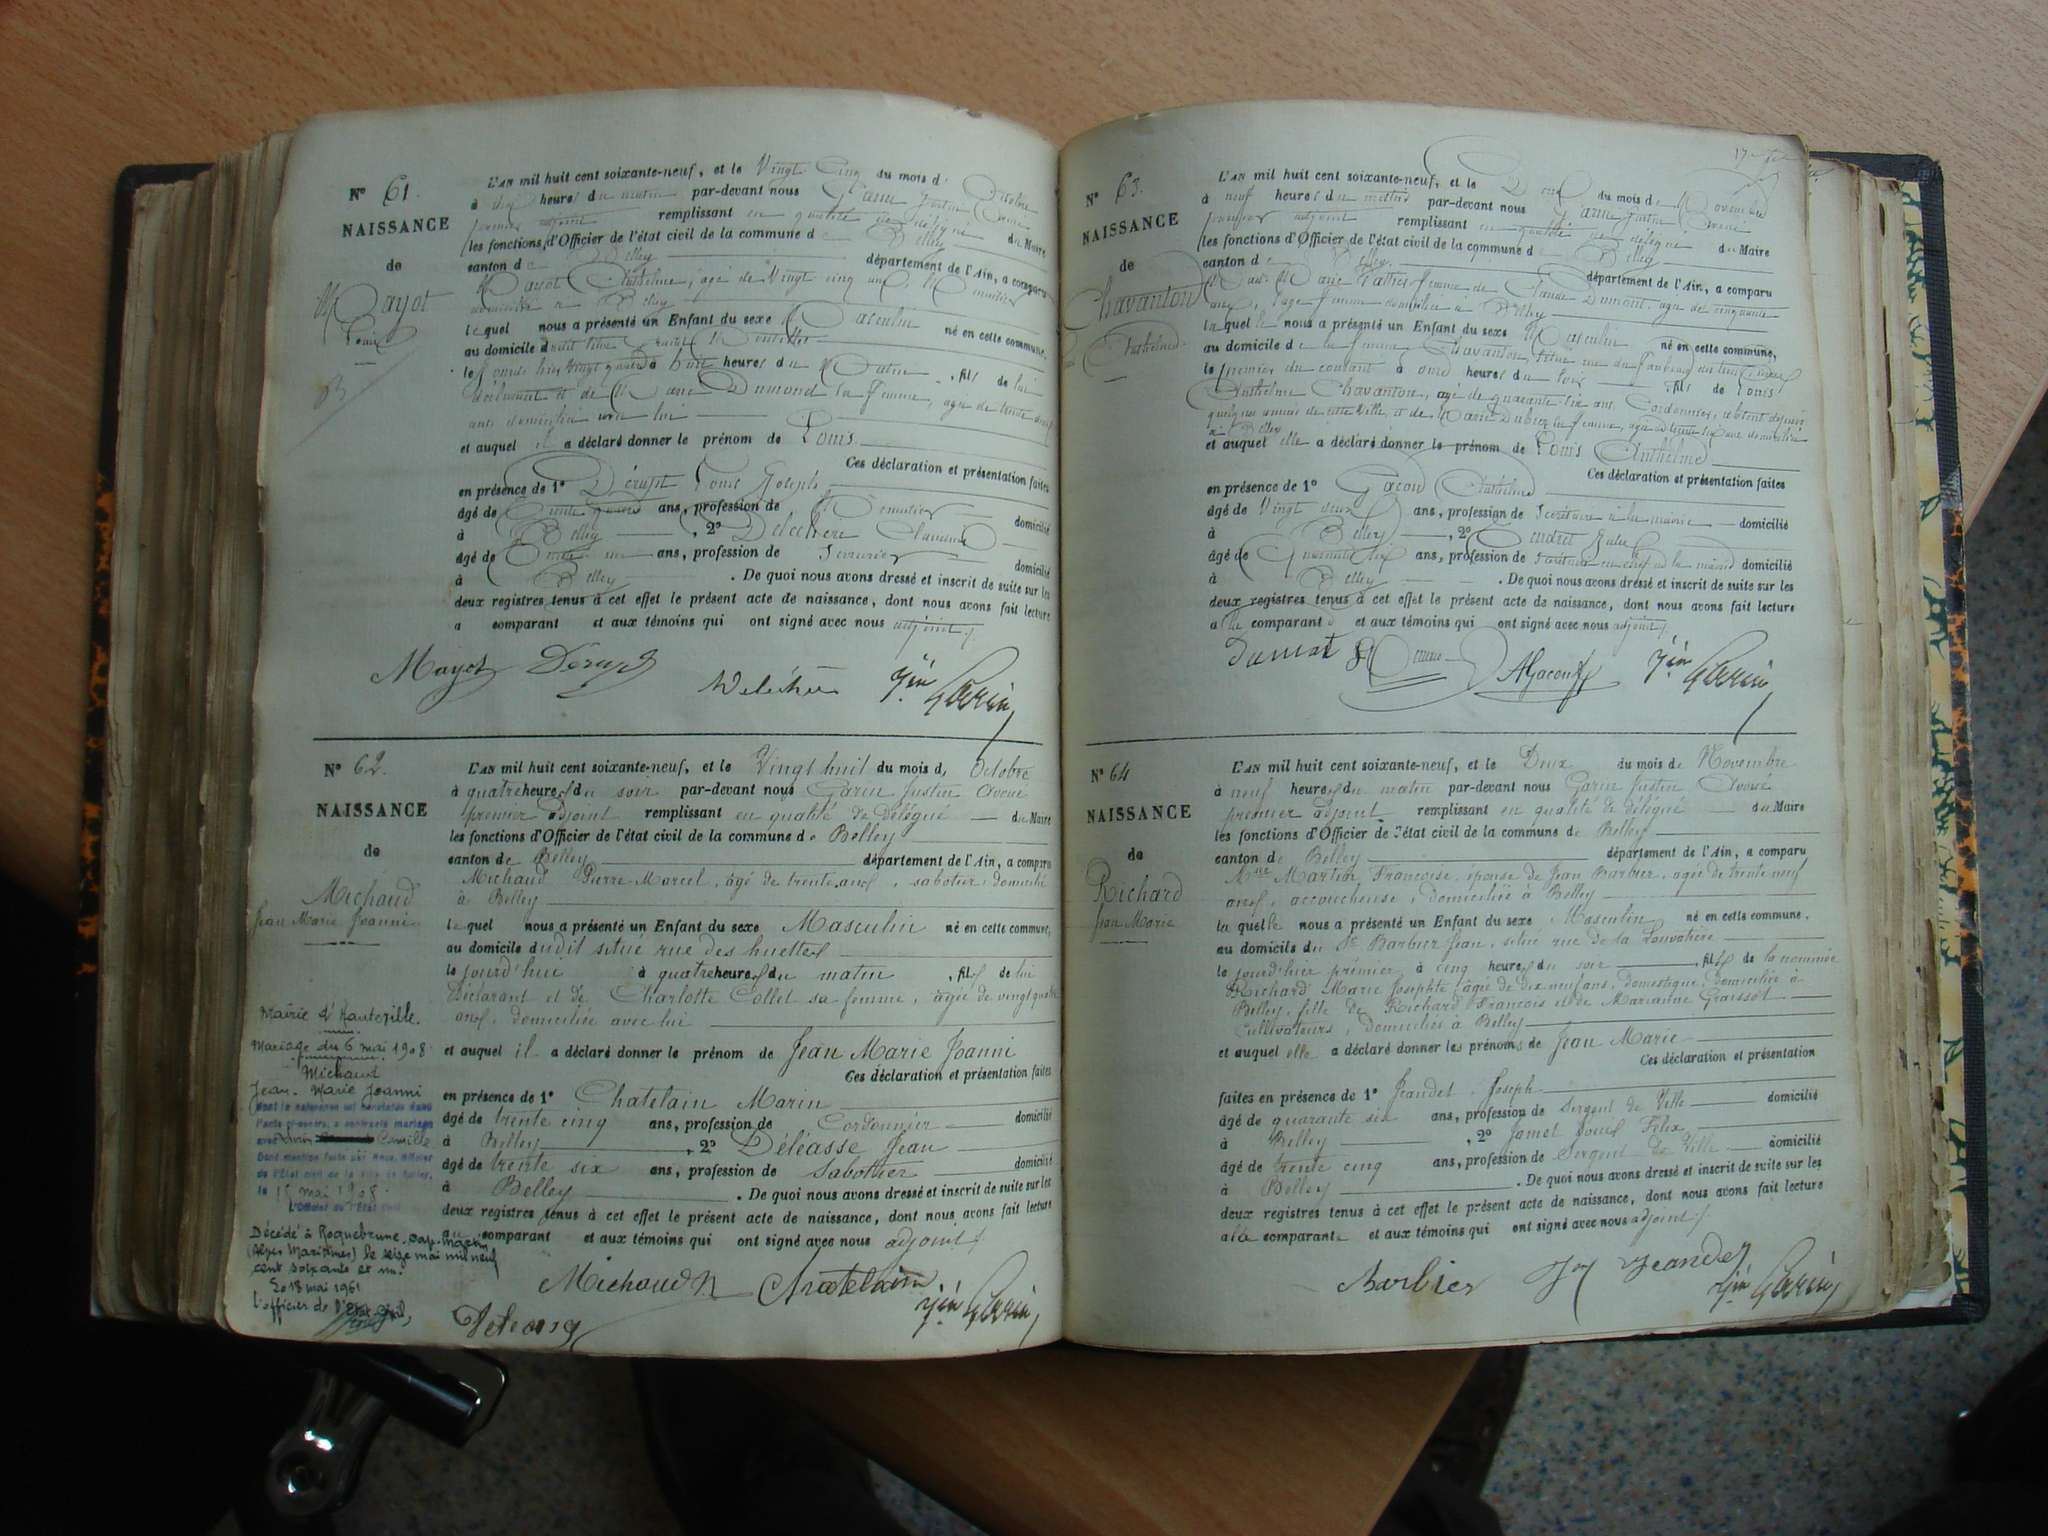 N° 61.
NAISSANCE
de
Mayot
Louis
L'AN mil huit cent soixante-neuf, et le Vingt Cinq du mois d'Octobre
à dix heures du matin par-devant nous Garin Justin Avoué
premier adjoint remplissant en qualité de Délégué du Maire
les fonctions d'Officier de l'état civil de la commune de Belley
canton de Belley département de l'Ain, a comparu
Mayot Anthelme, âgé de Vingt cinq ans, Menuisier
domicilié à Belley
lequel nous a présenté un Enfant du sexe Masculin né en cette commune,
au domicile
le heures du Matin, fils de lui
déclarant et de Marie Dumond sa femme, agée de trente deux
ans domiciliée avec lui
et auquel il a déclaré donner le prénom de Louis
Ces déclaration et présentation faites
en présence de 1° Louis Joseph
âgé de ans, profession de Menuisier domicilié
à Belley, 2° Claudius
âgé de ans, profession de Serrurier domicilié
à Belley. De quoi nous avons dressé et inscrit de suite sur les
deux registres tenus à cet effet le présent acte de naissance, dont nous avons fait lecture
a comparant et aux témoins qui ont signé avec nous adjoint
Mayot
Jin Garin
N° 62.
NAISSANCE
de
Michaud
Jean Marie Joanni
L'AN mil huit cent soixante-neuf, et le Vingt huit du mois d'Octobre
à quatre heures du soir par-devant nous Garin Justin Avoué
premier adjoint remplissant en qualité de Délégué du Maire
les fonctions d'Officier de l'état civil de la commune de Belley
canton de Belley département de l'Ain, a comparu
Michaud Pierre Marcel, âgé de trente ans, sabotier domicilié
à Belley
lequel nous a présenté un Enfant du sexe Masculin né en cette commune,
au domicile dudit situé rue des huettes
le jourd'hui à quatre heures du matin, fils de lui
Déclarant et de Charlotte Collet sa femme, agée de vingt quatre
ans, domiciliée avec lui
et auquel il a déclaré donner le prénom de Jean Marie Joanni
Ces déclaration et présentation faites
en présence de 1° Chatelain Marin
âgé de trente cinq ans, profession de Cordonnier domicilié
à Belley, 2° Déléasse Jean
âgé de trente six ans, profession de Sabottier domicilié
à Belley. De quoi nous avons dressé et inscrit de suite sur les
deux registres tenus à cet effet le présent acte de naissance, dont nous avons fait lecture
au comparant et aux témoins qui ont signé avec nous adjoint
Michaud Chatelain
Jin Garin
Mairie d'Hauteville.
Mariage du 6 mai 1908
Michaud
Jean-Marie Joanni
dont la naissance est constatée dans
l'acte ci-contre, a contracté mariage
avec Camille
Dont mention faite par Nous, Officier
de l'Etat civil de la ville de Belley,
le 15 mai 1908.
L'Officier de l'Etat civil
Décédé à Roquebrune cap-Martin
(Alpes Maritimes) le seize mai mil neuf
cent soixante et un.
Le 18 mai 1961
L'officier de l'Etat Civil,
N° 63.
NAISSANCE
de
Chavanton
Louis Anthelme
L'AN mil huit cent soixante-neuf, et le Deux du mois de Novembre
à neuf heures du matin par-devant nous Garin Justin Avoué
premier adjoint remplissant en qualité de délégué du Maire
les fonctions d'Officier de l'état civil de la commune de Belley
canton de Belley. département de l'Ain, a comparu
Marie femme de Claude Dumont, agée de cinquante
ans, Sage femme domiciliée à Belley
laquelle nous a présenté un Enfant du sexe Masculin né en cette commune,
au domicile de la femme Chavanton, située rue du Faubourg
le premier du courant à onze heures du soir, fils de Louis
Anthelme Chavanton, agé de quarante six ans, Cordonnier, absent depuis
quelques années de cette Ville, et de Marie sa femme, agée de trente six ans domiciliée
à Belley
et auquel elle a déclaré donner le prénom de Louis Anthelme
Ces déclaration et présentation faites
en présence de 1° Gacon Anthelme
âgé de Vingt deux ans, profession de Secrétaire à la mairie domicilié
à Belley, 2°
âgé de ans, profession de Secrétaire en chef de la mairie domicilié
à Belley. De quoi nous avons dressé et inscrit de suite sur les
deux registres tenus à cet effet le présent acte de naissance, dont nous avons fait lecture
a la comparante et aux témoins qui ont signé avec nous adjoint
AGacon
Jin Garin
N° 64
NAISSANCE
de
Richard
Jean Marie
L'AN mil huit cent soixante-neuf, et le Deux du mois de Novembre
à neuf heures du matin par-devant nous Garin Justin Avoué
premier adjoint remplissant en qualité de délégué du Maire
les fonctions d'Officier de l'état civil de la commune de Belley
canton de Belley département de l'Ain, a comparu
Mme Martin Françoise, épouse de Jean Barbier, agée de trente neuf
ans, accoucheuse, domiciliée à Belley
laquelle nous a présenté un Enfant du sexe Masculin né en cette commune,
au domicile du Sr Barbier Jean, situé rue de la Louvatière
le jourd'hier premier à cinq heures du soir, fils de la nommée
Richard Marie Josephte, agée de Dix neuf ans, Domestique, Domiciliée à
Belley, fille de Richard François et de Marianne Graissot
cultivateurs, Domiciliés à Belley
et auquel elle a déclaré donner les prénoms de Jean Marie
Ces déclaration et présentation
faites en présence de 1° Jeandet Joseph
âgé de quarante six ans, profession de Sergent de Ville domicilié
à Belley, 2° Jamet Louis Félix
âgé de trente cinq ans, profession de Sergent de Ville domicilié
à Belley. De quoi nous avons dressé et inscrit de suite sur les
deux registres tenus à cet effet le présent acte de naissance, dont nous avons fait lecture
a la comparante et aux témoins qui ont signé avec nous adjoint
Barbier Jeandet
Jin Garin